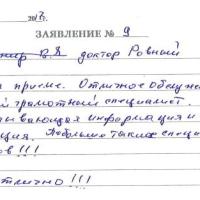 2017г.
ЗАЯВЛЕНИЕ № 9
доктор Ровный
приеме. Отличное обслуже
грамотный специалист.
ывающая информация и
ция. Побольше таких специ
ов!!!
тлично!!!